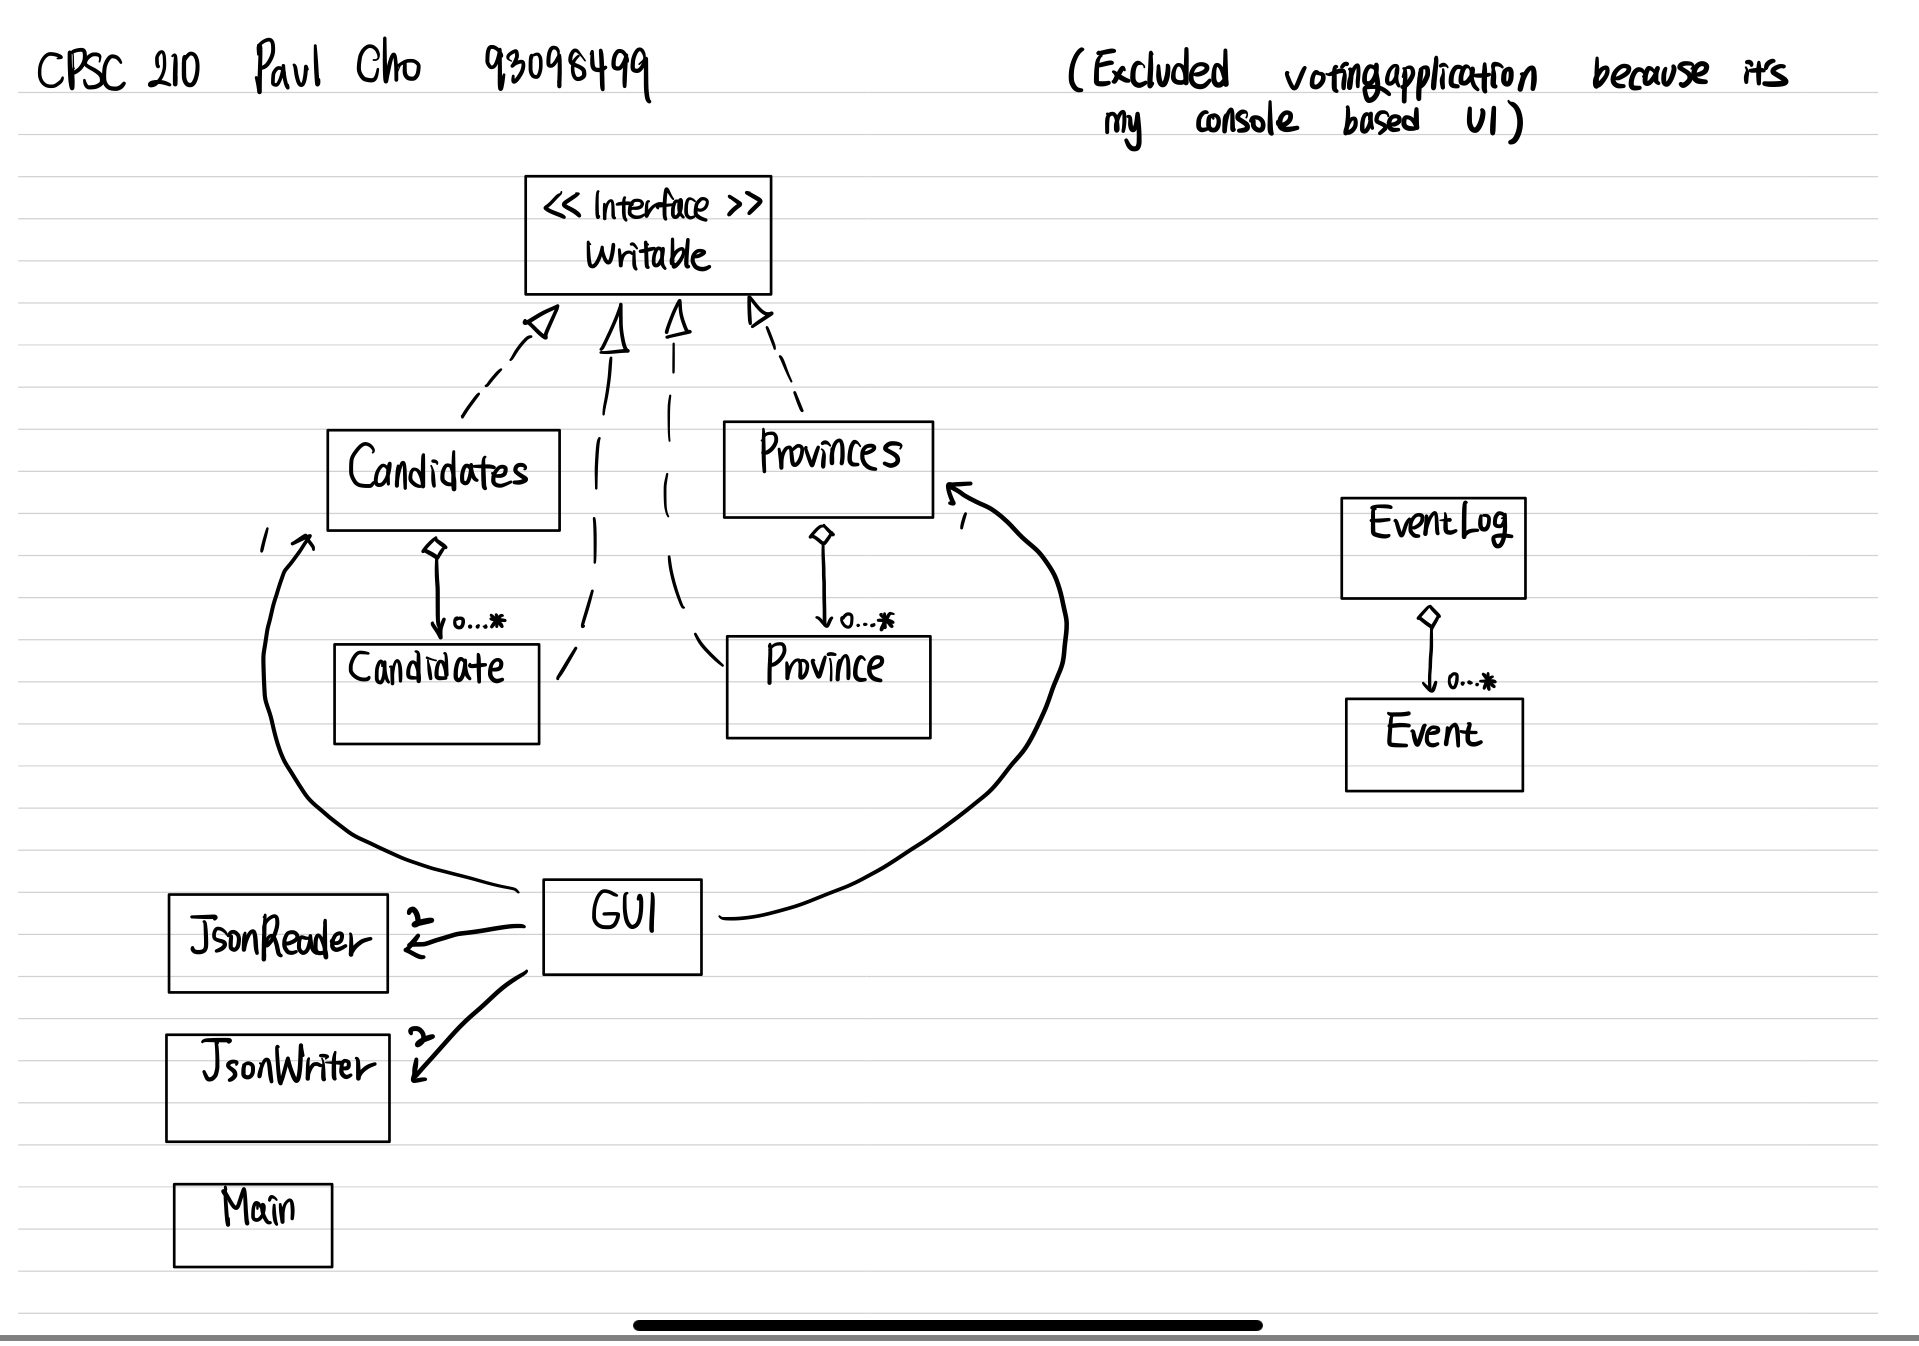 CPSC 210 Paul Cho 93098499
(Excluded votingapplication because it's
my console based UI)
<< Interface >>
Writable
Candidates
Provinces
EventLog
1
1
0...*
0...*
Candidate
Province
0...*
Event
GUI
2
JsonReader
2
JsonWriter
Main